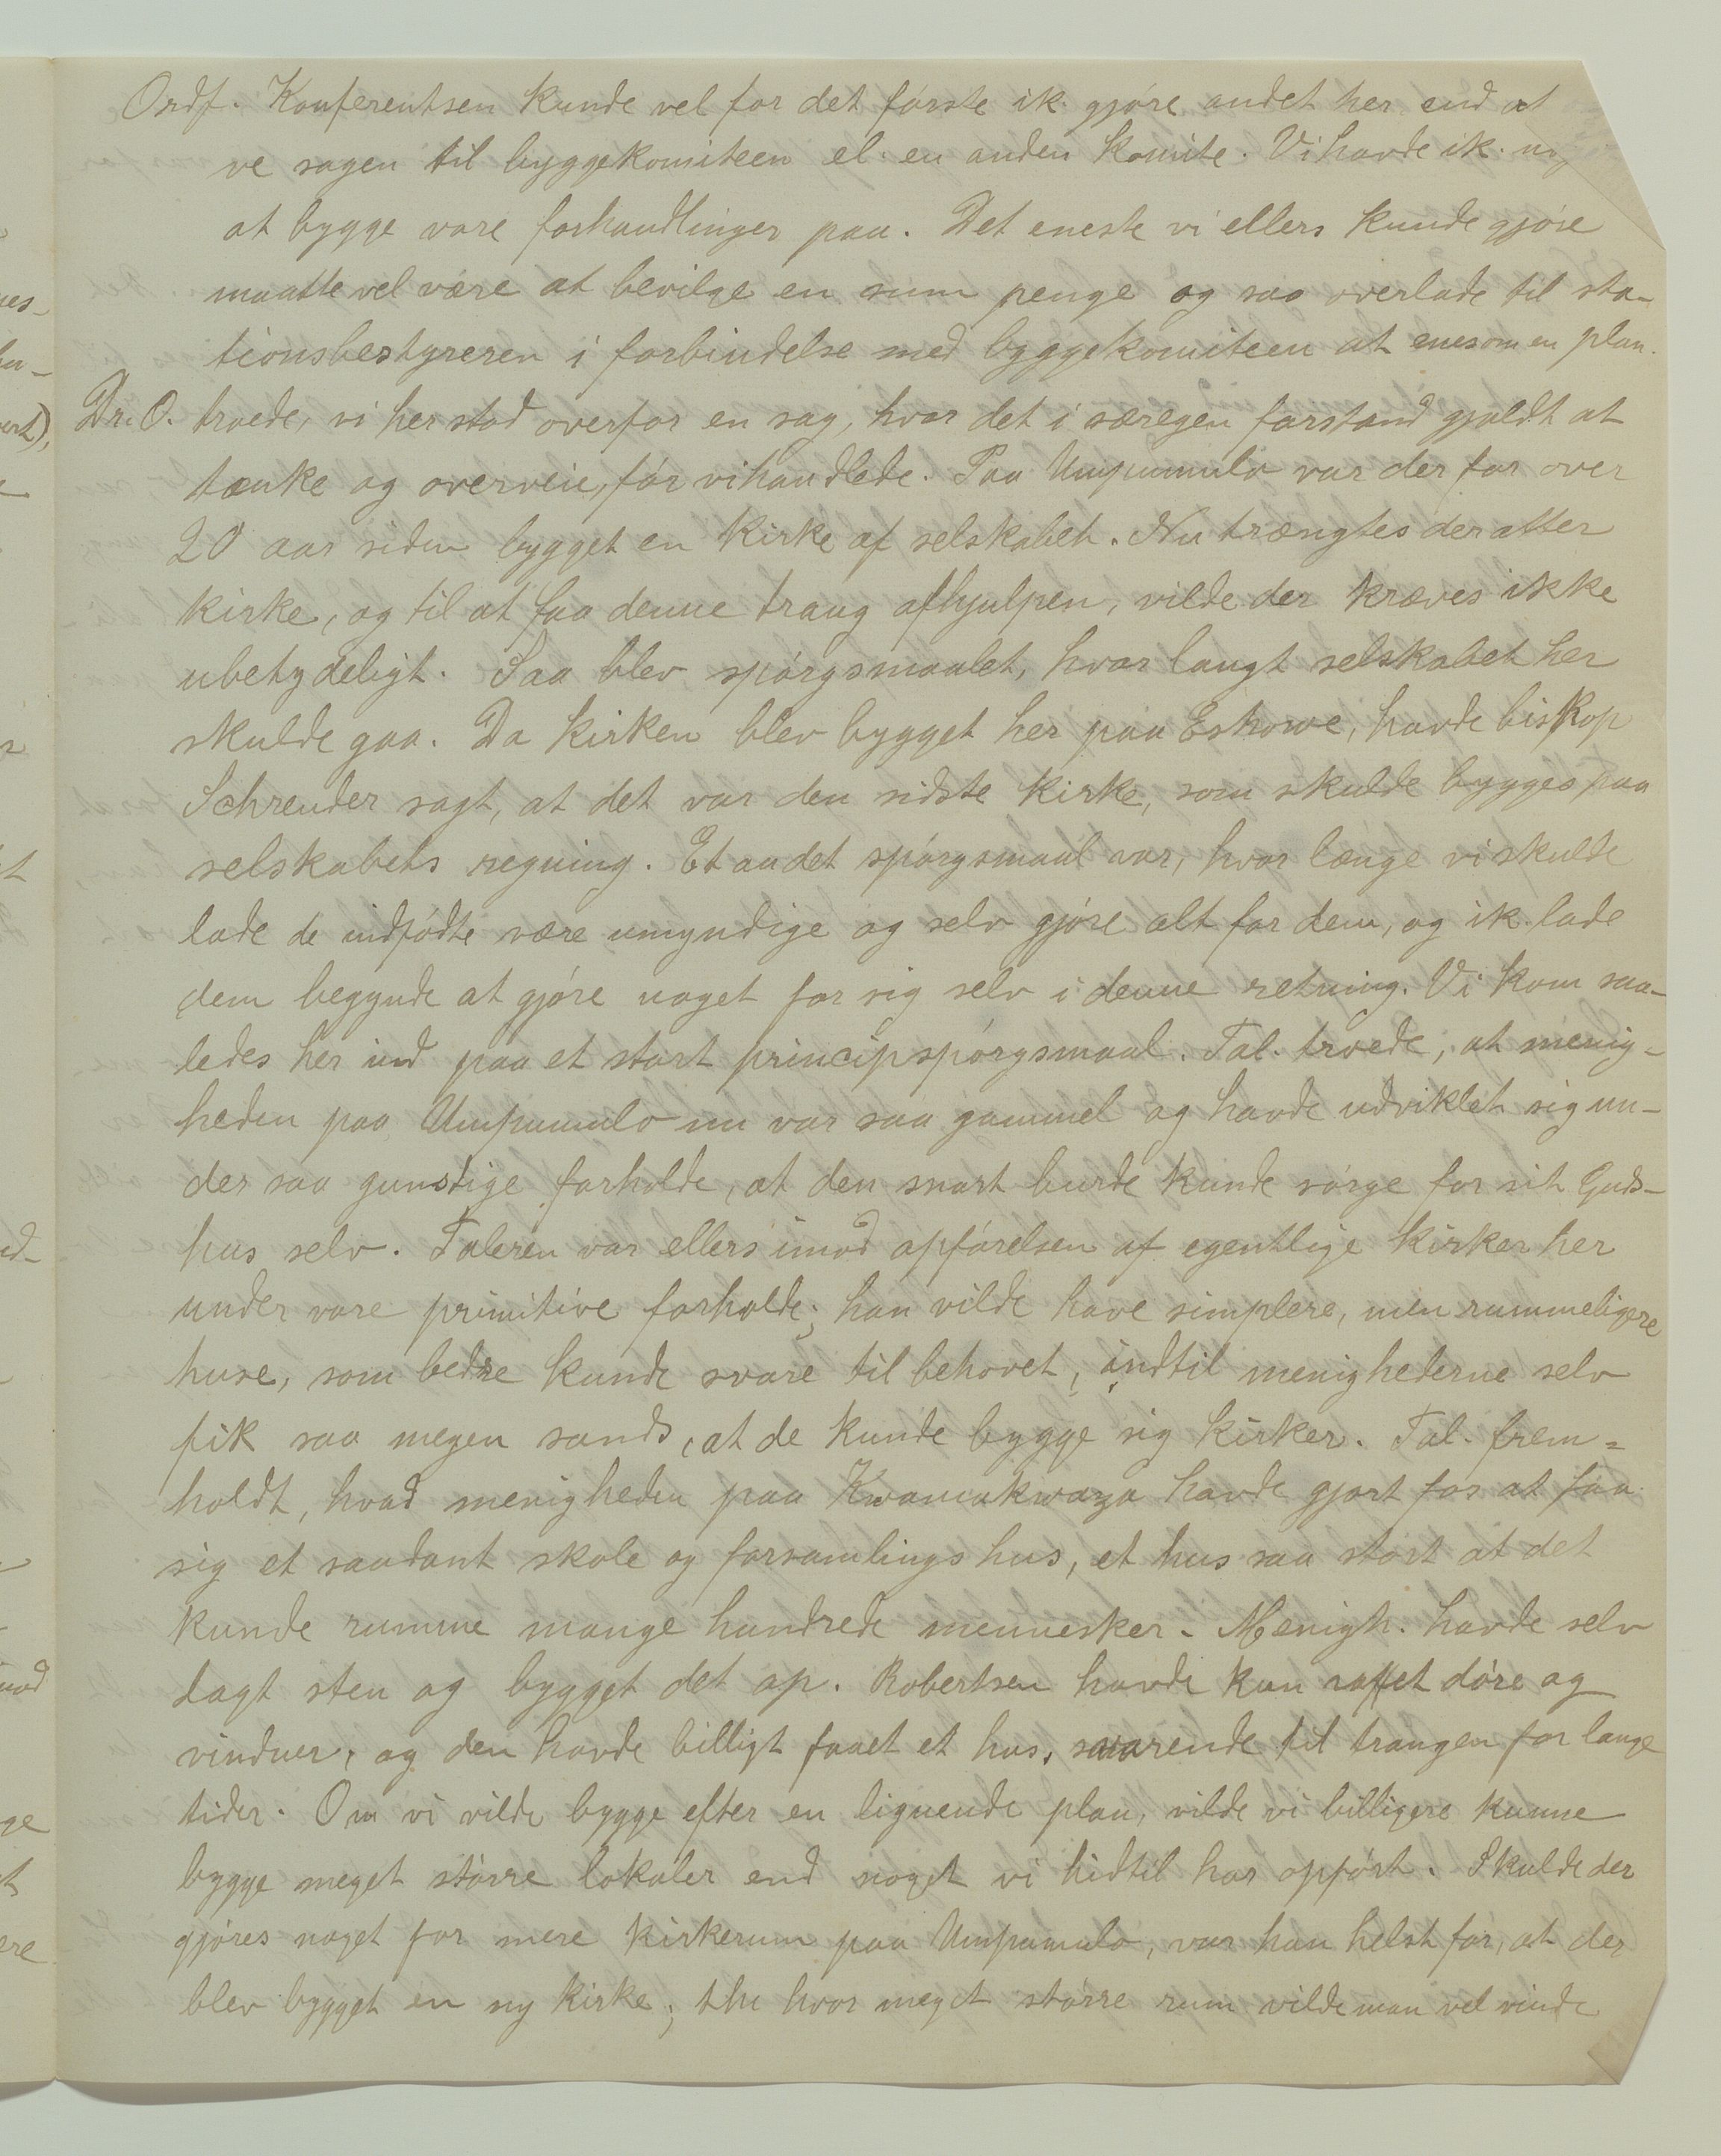 Ordf. Konferentsen kunde vel for det første ik. gjøre andet her end at
ve sagen til byggekomiteen el. en anden komite. Vi havde ik.
at bygge vore forhandlinger paa. Det eneste vi ellers kunde gjøre
maatte vel være at bevilge en sum penge og saa overlade til sta-
tionsbestyreren i forbindelse med byggekomiteen at enes om en plan.
Dr. O. troede, vi her stod overfor en sag, hvor det i særegen forstand gjaldt at
tænke og overveie, før vi handlede. Paa Umpumulo var der for over
20 aar siden bygget en kirke af selskabet. Nu trængtes der atter
kirke, og til at faa denne trang afhjulpen, vilde der kræves ikke
ubetydeligt. Saa blev spørgsmaalet, hvor langt selskabet her
skulde gaa. Da kirken blev bygget her paa Eshowe, havde biskop
Schreuder sagt, at det var den sidste kirke, som skulde bygges paa
selskabets regning. Et andet spørgsmaal var, hvor længe vi skulde
lade de indfødte være umyndige og selv gjøre alt for dem, og ik. lade
dem begynde at gjøre noget for sig selv i denne retning. Vi kom saa-
ledes her ind paa et stort principspørgsmaal. Tal. troede, at menig-
heden paa Umpumulo nu var saa gammel og havde udviklet sig un-
der saa gunstige forholde, at den snart burde kunde sørge for sit Guds-
hus selv. Taleren var ellers imod opførelsen af egentlige kirker her
under vore primitive forholde; han vilde have simplere, men rummeligere
huse, som bedre kunde svare til behovet, indtil menighederne selv
fik saa megen sands, at de kunde bygge sig kirker. Tal. frem-
holdt, hvad menigheden paa Kwamakwaza havde gjort for at faa
sig et saadant skole og forsamlingshus, et hus saa stort at det
kunde rumme mange hundrede mennesker. Menigh. havde selv
lagt sten og bygget det op. Robertsen havde kun saffet døre og
vinduer, og den havde billigt faaet et hus, svarende til trangen for lange
tider. Om vi vilde bygge efter en lignende plan, vilde vi billigere kunne
bygge meget større lokaler end noget vi hidtil har opført. Skulde der
gjøres noget for mere kirkerum paa Umpumulo, var han helst for, at der
blev bygget en ny kirke; thi hvor meget større rum vilde man vel vinde